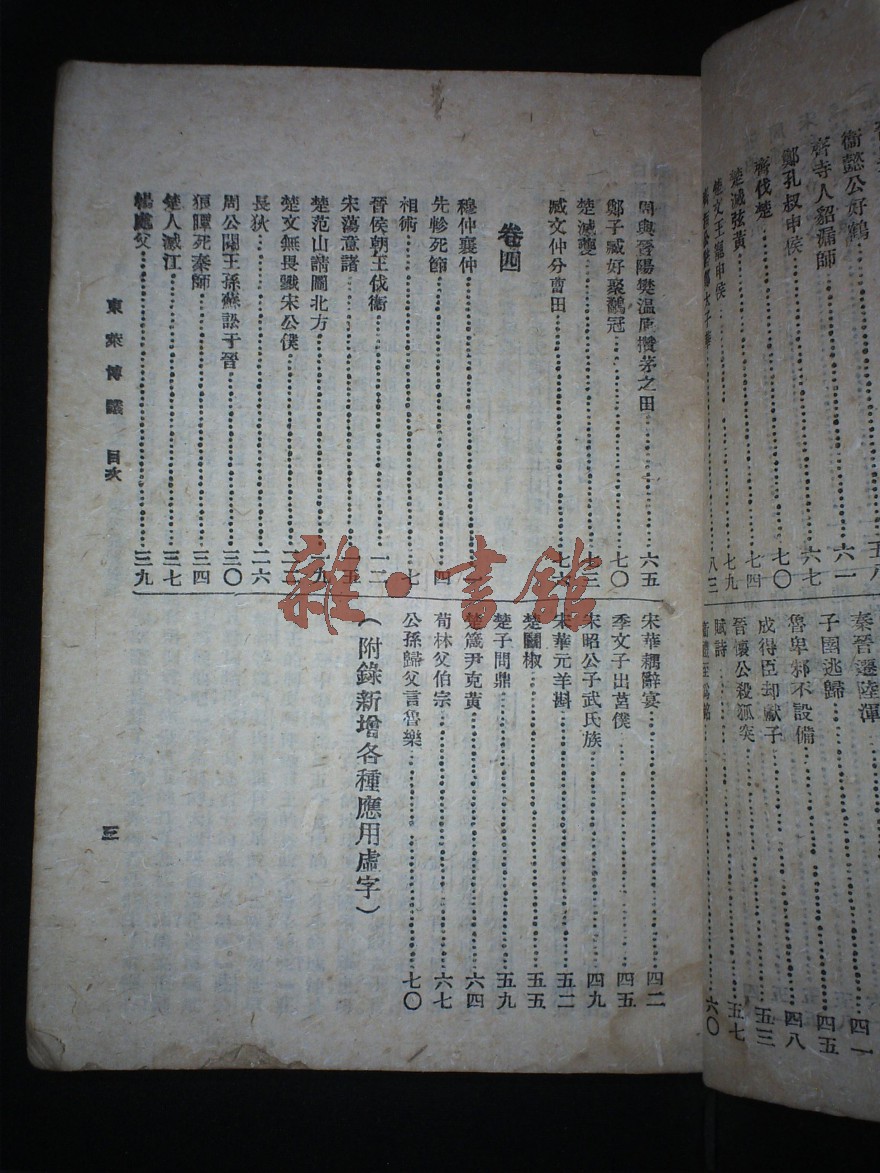 衞懿公好鶴
五八
齊寺人貂漏師
六一
鄭孔叔申侯
六七
齊伐楚
七〇
楚滅弦黃
七四
楚文王寵申侯
七九
八三
秦晉遷陸渾
四一
子圉逃歸
四五
魯卑邾不設備
四八
成得臣却獻子
五三
晉懷公殺狐突
五七
賦詩
六〇
周與晉陽樊溫原攢茅之田 六五
鄭子臧好聚鷸冠 七〇
楚滅夔 七三
臧文仲分曹田 七六
卷四
穆仲襄仲 一
先軫死節 四
相術 七
晉侯朝王伐衞 一二
宋蕩意諸
楚范山請圖北方 一九
楚文無畏戮宋公僕
長狄 二六
周公閱王孫蘇訟于晉 三〇
狼瞫死秦師 三四
楚人滅江 三七
陽處父 三九
宋華耦辭宴 四二
季文子出莒僕 四五
宋昭公子武氏族 四九
宋華元羊斟 五二
楚鬬椒 五五
楚子問鼎 五九
楚箴尹克黃 六四
荀林父伯宗 六七
公孫歸父言魯樂 七〇
（附錄新增各種應用虛字）
東萊博議 目次
三
雜·書館